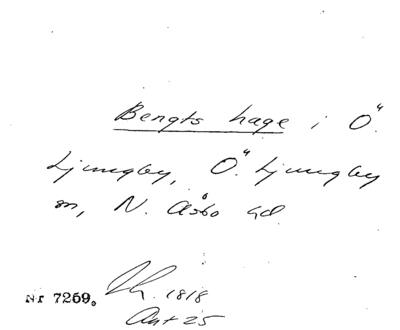 Bengts hage i Ö.
Ljungby, Ö. Ljungby
sn, N. Åsbo hd.
Nr 7259. 1818
Akt 25